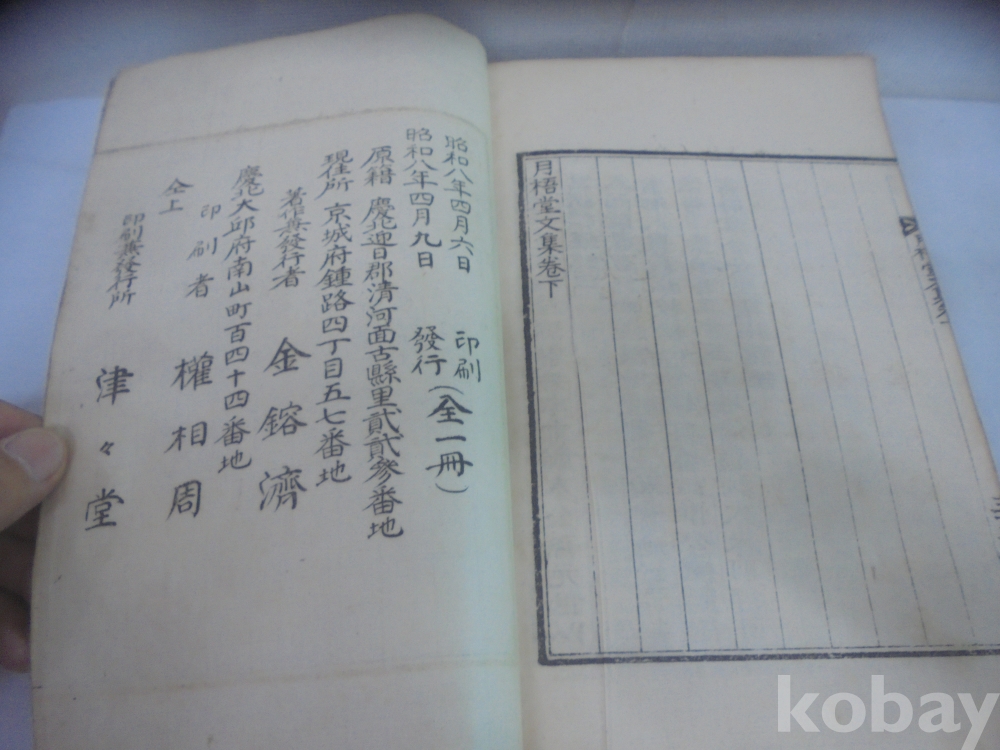 月梧堂文集卷下
昭和八年四月六日 印刷
昭和八年四月九日 發行(全一冊)
原籍 慶北迎日郡清河面古縣里貳貳參番地
現住所 京城府鍾路四丁目五七番地
著作兼發行者 金鎔濟
慶北大邱府南山町百四十四番地
印刷者 權相周
仝上
印刷兼發行所 津々堂
kobay